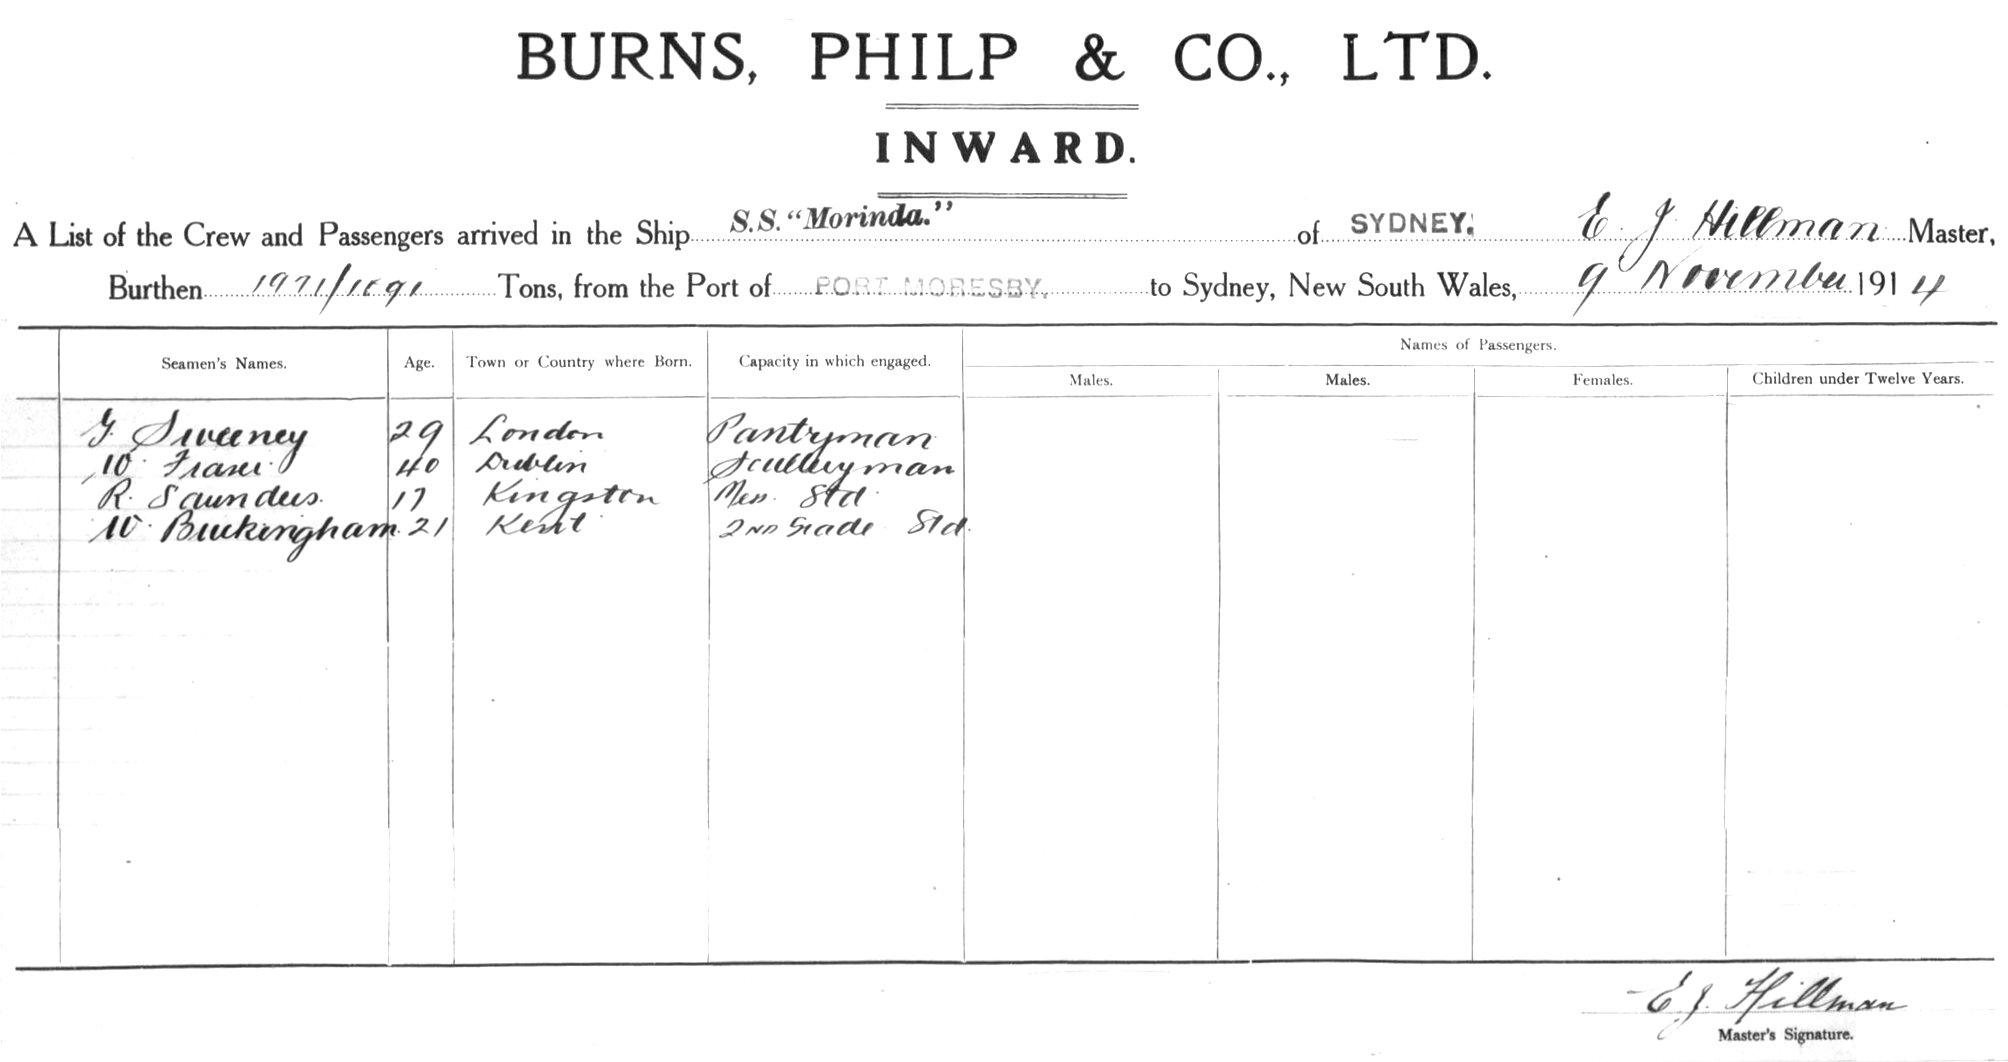 BURNS, PHILP & CO., LTD.
INWARD.
A List of the Crew and Passengers arrived in the Ship S.S. "Morinda." of SYDNEY. E. J. Hillman Master,
Burthen 1971/1891 Tons, from the Port of PORT MORESBY. to Sydney, New South Wales, 9 November 1914
Names of Passengers.
Seamen's Names. Age. Town or Country where Born. Capacity in which engaged. Males. Males. Females. Children under Twelve Years.
Sweeney 29 London Pantryman
W. Fraser 40 Dublin Sculleryman
R. Saunders. 17 Kingston Mess. Std.
W. Buckingham. 21 Kent 2ND Grade Std.
E J. Hillman
Master's Signature.